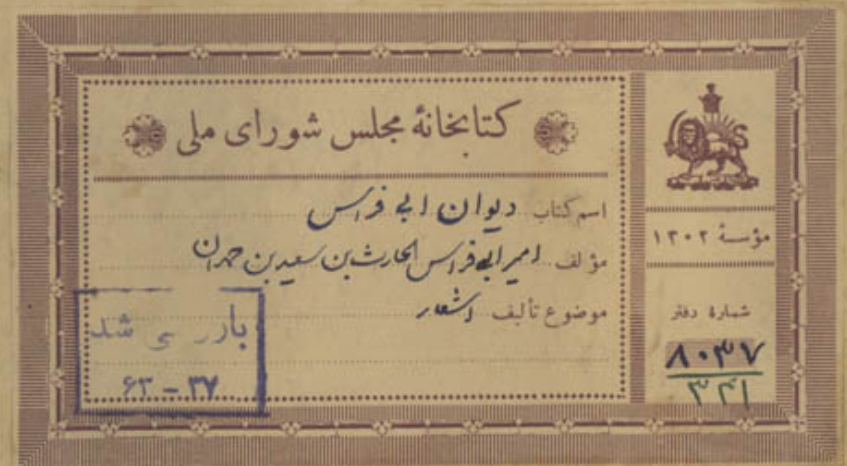 کتابخانهٔ مجلس شورای ملی
اسم کتاب دیوان ابی فراس
مؤلف امیر ابی فراس الحارث بن سعید بن حمدان
موضوع تألیف اشعار
مؤسسهٔ ۱۳۰۲
شمارهٔ دفتر
۸۰۳۷
۳۴۱
شد
۶۳ - ۳۷